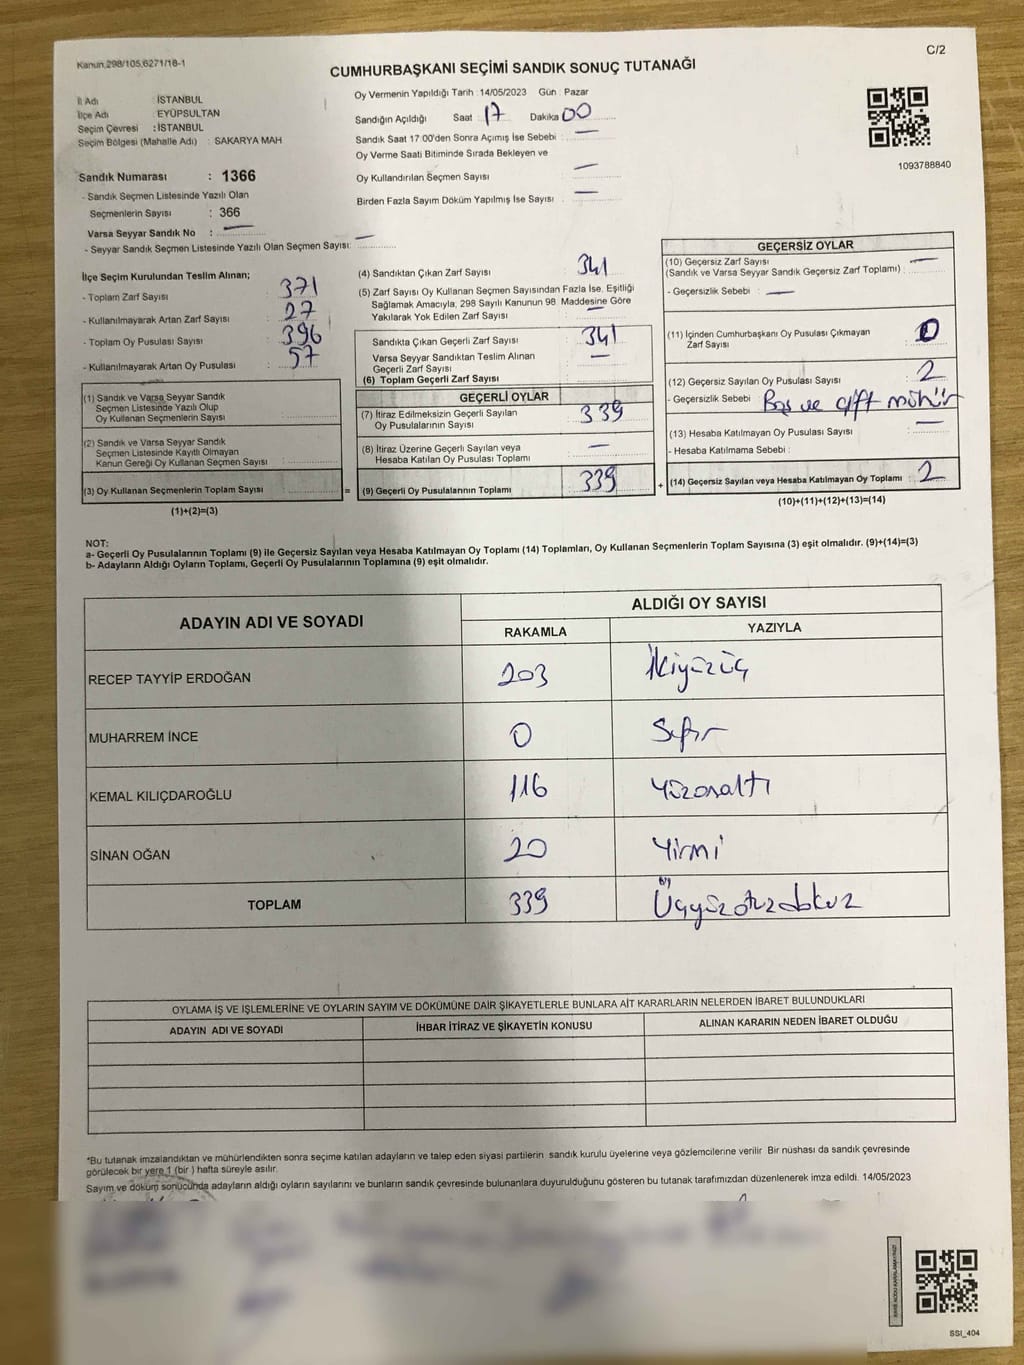 Kanun,298/105,6271/18-1
C/2
CUMHURBAŞKANI SEÇİMİ SANDIK SONUÇ TUTANAĞI
İl Adı : İSTANBUL
İlçe Adı : EYÜPSULTAN
Seçim Çevresi : İSTANBUL
Seçim Bölgesi (Mahalle Adı) : SAKARYA MAH
Sandık Numarası : 1366
- Sandık Seçmen Listesinde Yazılı Olan
Seçmenlerin Sayısı : 366
Varsa Seyyar Sandık No : —
- Seyyar Sandık Seçmen Listesinde Yazılı Olan Seçmen Sayısı: —
Oy Vermenin Yapıldığı Tarih : 14/05/2023 Gün : Pazar
Sandığın Açıldığı Saat 17 Dakika 00
Sandık Saat 17 00'den Sonra Açımış İse Sebebi : —
Oy Verme Saati Bitiminde Sırada Bekleyen ve
Oy Kullandırılan Seçmen Sayısı : —
Birden Fazla Sayım Döküm Yapılmış İse Sayısı : —
1093788840
İlçe Seçim Kurulundan Teslim Alınan;
- Toplam Zarf Sayısı : 371
- Kullanılmayarak Artan Zarf Sayısı : 27
- Toplam Oy Pusulası Sayısı : 396
- Kullanılmayarak Artan Oy Pusulası : 57
(1) Sandık ve Varsa Seyyar Sandık
Seçmen Listesinde Yazılı Olup
Oy Kullanan Seçmenlerin Sayısı :
(2) Sandık ve Varsa Seyyar Sandık
Seçmen Listesinde Kayıtlı Olmayan
Kanun Gereği Oy Kullanan Seçmen Sayısı :
(3) Oy Kullanan Seçmenlerin Toplam Sayısı =
(1)+(2)=(3)
(4) Sandıktan Çıkan Zarf Sayısı 341
(5) Zarf Sayısı Oy Kullanan Seçmen Sayısından Fazla İse, Eşitliği
Sağlamak Amacıyla, 298 Sayılı Kanunun 98. Maddesine Göre
Yakılarak Yok Edilen Zarf Sayısı —
Sandıkta Çıkan Geçerli Zarf Sayısı 341
Varsa Seyyar Sandıktan Teslim Alınan
Geçerli Zarf Sayısı —
(6) Toplam Geçerli Zarf Sayısı
GEÇERLİ OYLAR
(7) İtiraz Edilmeksizin Geçerli Sayılan
Oy Pusulalarının Sayısı 339
(8) İtiraz Üzerine Geçerli Sayılan veya
Hesaba Katılan Oy Pusulası Toplamı —
(9) Geçerli Oy Pusulalarının Toplamı 339 +
GEÇERSİZ OYLAR
(10) Geçersiz Zarf Sayısı
(Sandık ve Varsa Seyyar Sandık Geçersiz Zarf Toplamı) : —
- Geçersizlik Sebebi : —
(11) İçinden Cumhurbaşkanı Oy Pusulası Çıkmayan
Zarf Sayısı 0
(12) Geçersiz Sayılan Oy Pusulası Sayısı 2
- Geçersizlik Sebebi Boş ve çift mühür
(13) Hesaba Katılmayan Oy Pusulası Sayısı —
- Hesaba Katılmama Sebebi :
(14) Geçersiz Sayılan veya Hesaba Katılmayan Oy Toplamı 2
(10)+(11)+(12)+(13)=(14)
NOT:
a- Geçerli Oy Pusulalarının Toplamı (9) ile Geçersiz Sayılan veya Hesaba Katılmayan Oy Toplamı (14) Toplamları, Oy Kullanan Seçmenlerin Toplam Sayısına (3) eşit olmalıdır. (9)+(14)=(3)
b- Adayların Aldığı Oyların Toplamı, Geçerli Oy Pusulalarının Toplamına (9) eşit olmalıdır.
ADAYIN ADI VE SOYADI ALDIĞI OY SAYISI
RAKAMLA YAZIYLA
RECEP TAYYİP ERDOĞAN 203 İkiyüzüç
MUHARREM İNCE 0 Sıfır
KEMAL KILIÇDAROĞLU 116 Yüzonaltı
SİNAN OĞAN 20 Yirmi
TOPLAM 339 Üçyüzotuzdokuz
OYLAMA İŞ VE İŞLEMLERİNE VE OYLARIN SAYIM VE DÖKÜMÜNE DAİR ŞİKAYETLERLE BUNLARA AİT KARARLARIN NELERDEN İBARET BULUNDUKLARI
ADAYIN ADI VE SOYADI İHBAR İTİRAZ VE ŞİKAYETİN KONUSU ALINAN KARARIN NEDEN İBARET OLDUĞU
*Bu tutanak imzalandıktan ve mühürlendikten sonra seçime katılan adayların ve talep eden siyasi partilerin sandık kurulu üyelerine veya gözlemcilerine verilir Bir nüshası da sandık çevresinde
görülecek bir yere 1 (bir ) hafta süreyle asılır.
Sayım ve döküm sonucunda adayların aldığı oyların sayılarını ve bunların sandık çevresinde bulunanlara duyurulduğunu gösteren bu tutanak tarafımızdan düzenlenerek imza edildi. 14/05/2023
SSI_404